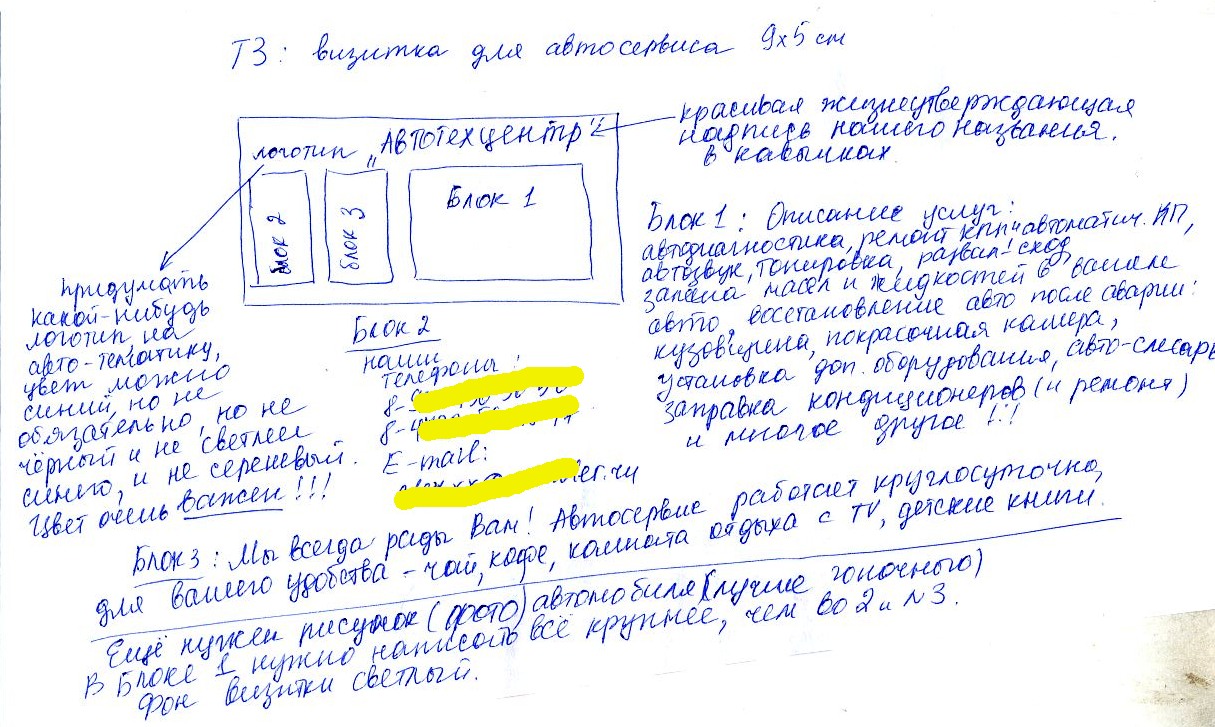 ТЗ: визитка для автосервиса 9х5 см
логотип „АВТОТЕХЦЕНТР"
красивая жизнеутверждающая
надпись нашего названия.
в кавычках.
Блок 2
Блок 3
Блок 1
придумать
какой-нибудь
логотип на
авто-тематику,
цвет можно
синий, но не
обязательно, но не
чёрный и не светлее
синего, и не сереневый.
Цвет очень важен!!!
Блок 2
наши
телефоны:
8-
8-
E-mail:
Блок 1: Описание услуг:
автодиагностика, ремонт КПП и автоматич. КП,
автозвук, тонировка, развал-сход,
замена масел и жидкостей в вашем
авто, восстановление авто после аварии:
кузовщина, покрасочная камера,
установка доп. оборудования, авто-слесарь
заправка кондиционеров (и ремонт)
и многое другое!!!
Блок 3: Мы всегда рады Вам! Автосервис работает круглосуточно,
для вашего удобства - чай, кофе, комната отдыха с TV, детские книги.
Ещё нужен рисунок (фото) автомобиля (лучше гоночного)
В Блоке 1 нужно написать всё крупнее, чем во 2 и №3.
Фон визитки светлый.